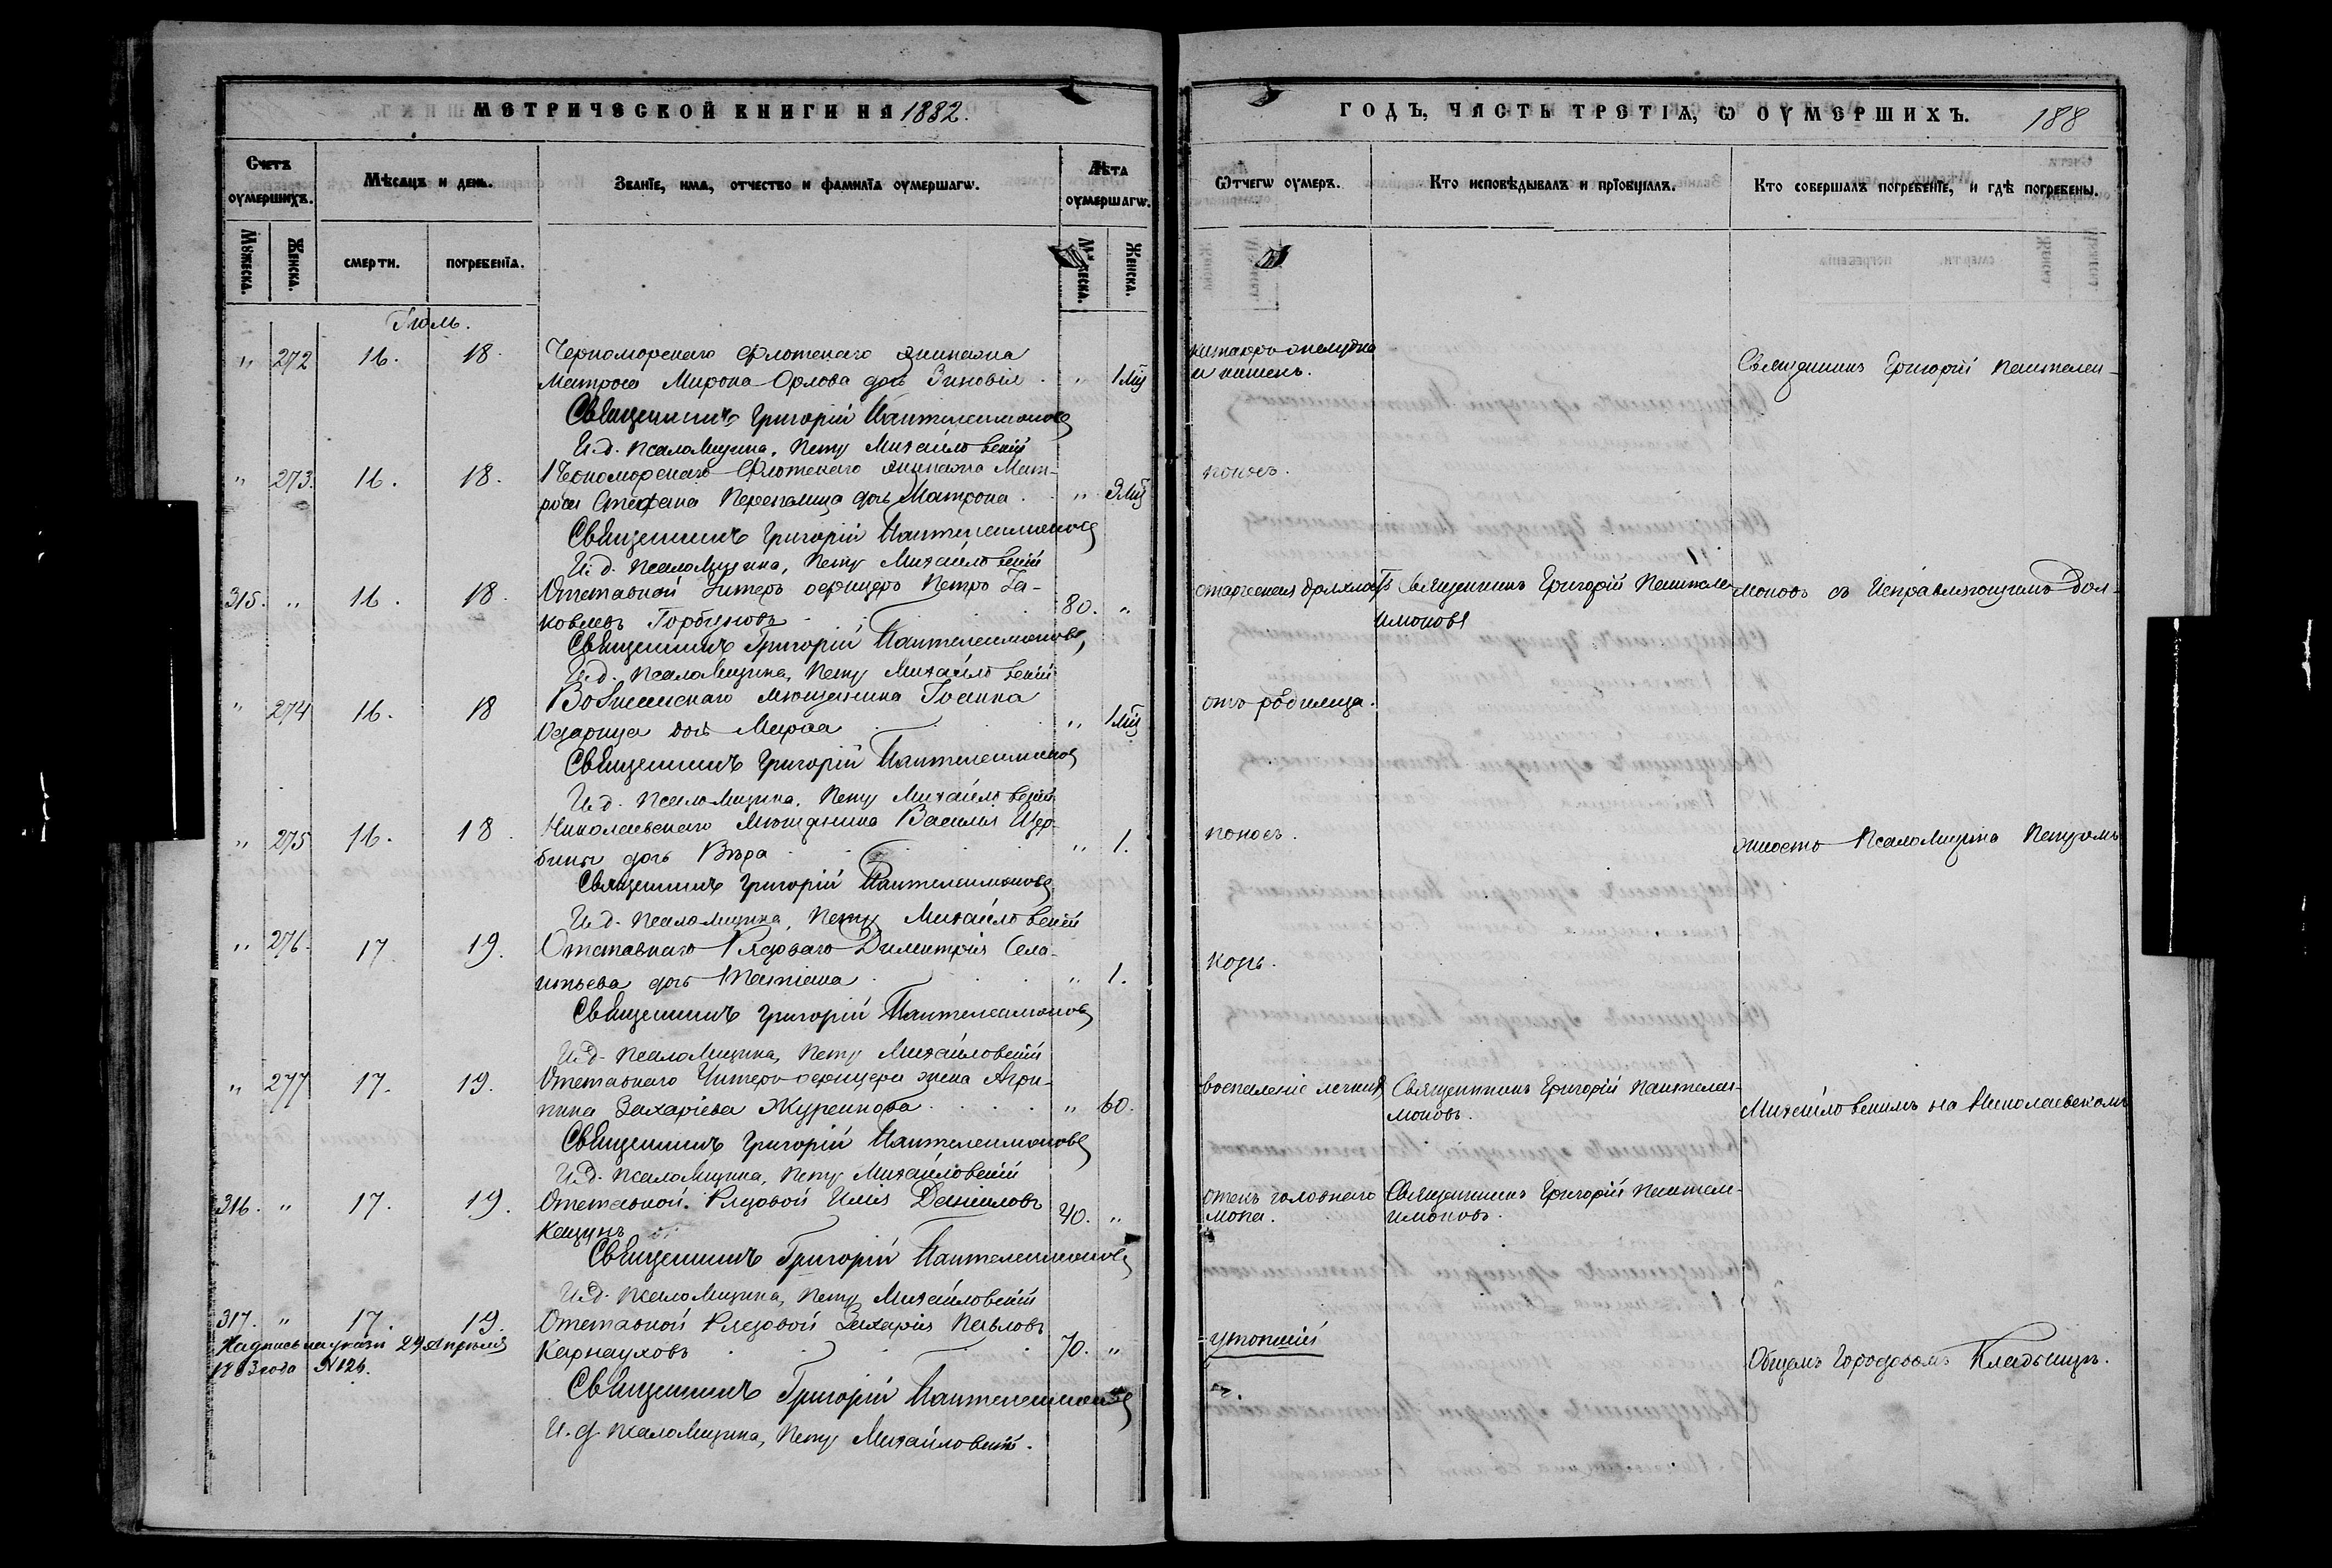 МЕТРИЧЕСКОЙ КНИГИ НА 1882.
Счетъ оумершихъ.
Мѣсяцъ и день.
Званїе, имя, отчество и фамилїя оумершагѡ.
Лѣта оумершагѡ.
Мꙋжеска.
Женска.
смерти.
погребенїя.
Женска.
Іюль.
" 272 16. 18. Черноморскаго Флотскаго экипажа
Матроса Мирона Орлова дочь Зиновія " 1 мц
Священникъ Григорій Пантелеимоновъ
И. д. Псаломщика, Петръ Михайловскій
" 273. 16. 18. Черноморскаго Флотскаго экипажа Мат-
роса Стефана дочь Матрона " 3 мц
Священникъ Григорій Пантелеимоновъ
И. д. Псаломщика, Петръ Михайловскій
315. " 16. 18. Отставной Унтеръ офицеръ Петръ Іа-
ковлевъ Горбуновъ 80. "
Священникъ Григорій Пантелеимоновъ,
И. д. Псаломщика, Петръ Михайловскій
" 274 16. 18 Вознесенскаго мѣщанина Іоанна
дочь Марѳа " 1 мц
Священникъ Григорій Пантелеимоновъ
И. д. Псаломщика, Петръ Михайловскій
" 275 16. 18. Николаевскаго Мѣщанина Василія Щер-
бины дочь Вѣра " 1.
Священникъ Григорій Пантелеимоновъ
И. д. Псаломщика, Петръ Михайловскій
" 276. 17 19. Отставнаго Рядоваго Димитрія
дочь " 1.
Священникъ Григорій Пантелеимоновъ
И. д. Псаломщика, Петръ Михайловскій
" 277 17. 19. Отставнаго Унтеръ-офицера жена Агри-
пина Захаріева " 60.
Священникъ Григорій Пантелеимоновъ
И. д. Псаломщика, Петръ Михайловскій
316. " 17. 19. Отставной Рядовой Илія Даніиловъ
40. "
Священникъ Григорій Пантелеимоновъ
И. д. Псаломщика, Петръ Михайловскій
317. " 17. 19. Отставной Рядовой Захарія Павловъ
Карнауховъ 70. "
29 Апрѣля
1883 года №126.
Священникъ Григорій Пантелеимоновъ
И. д. Псаломщика, Петръ Михайловскій.
ГОДЪ, ЧАСТЬ ТРЕТІѦ, Ѡ ОУМЕРШИХЪ. 188
Ѿчегѡ оумеръ.
Кто исповѣдывалъ и прїобщалъ.
Кто совершалъ погребенїе, и гдѣ погребены.
желудка
и кишекъ.
Священникъ Григорій Пантелеи-
поносъ.
старческая дряхлость Священникъ Григорій Пантеле-
имоновъ
моновъ съ Исправляющимъ Дол-
отъ родимца.
поносъ.
жность Псаломщика Петромъ
корь.
воспаленіе легкихъ Священникъ Григорій Пантелеи-
моновъ.
Михайловскимъ на Николаевскомъ
отекъ головнаго
мозга.
Священникъ Григорій Пантеле-
имоновъ.
утопшій
Общемъ Городовомъ Кладбищѣ.